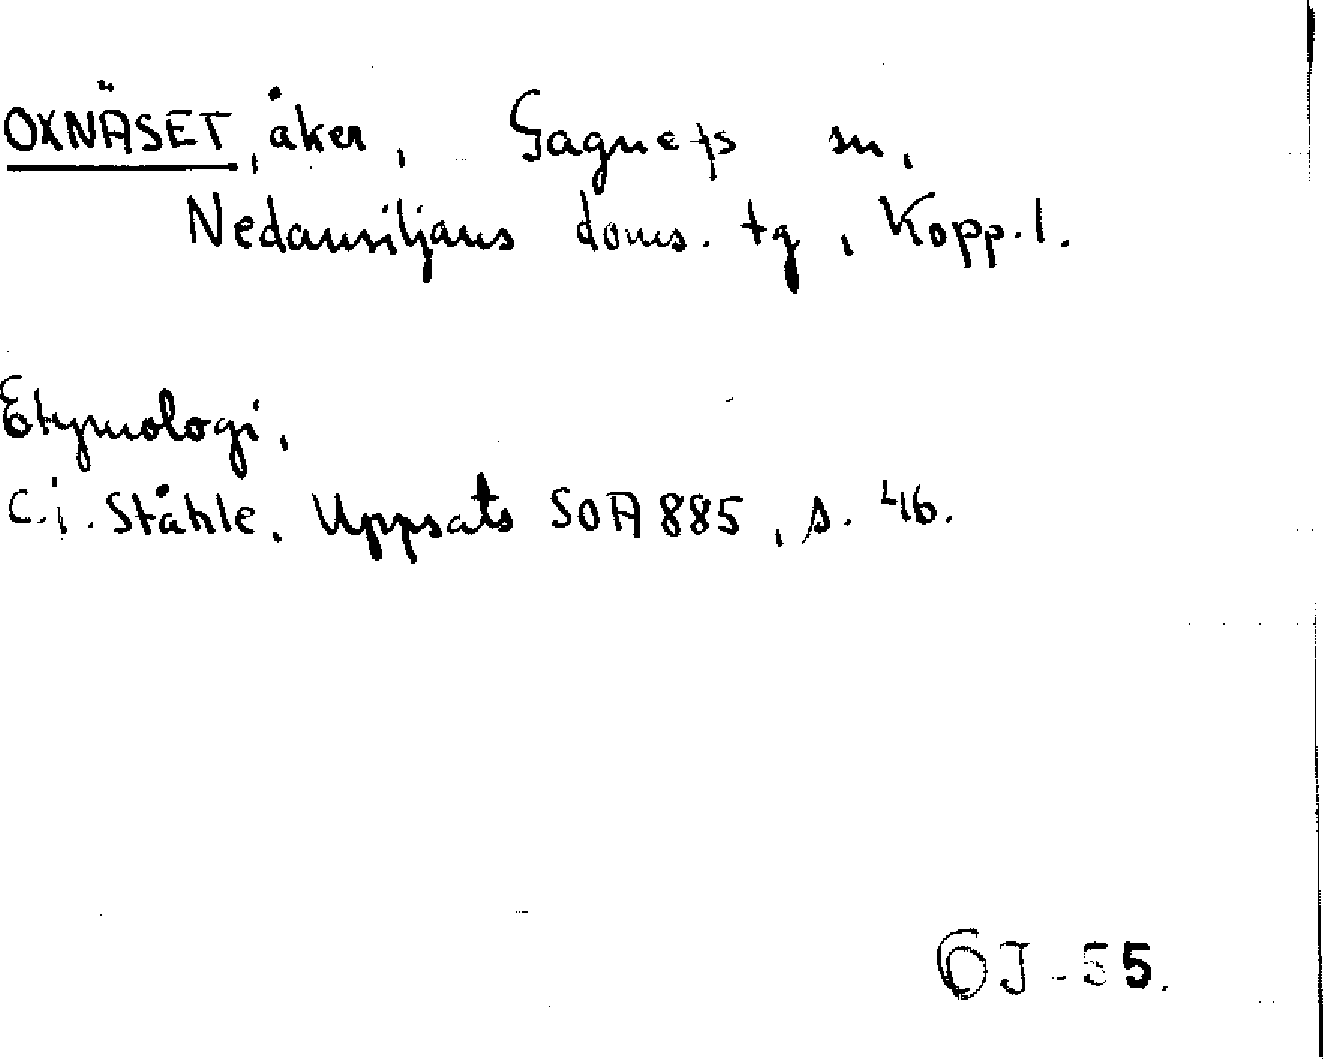 OXNÄSET, åker, Gagnefs sn,
Nedansiljans doms. tg, Kopp. l.
Etymologi.
C.I. Ståhle, Uppsats SOA 885, s. 46.
ÖJ - 55.